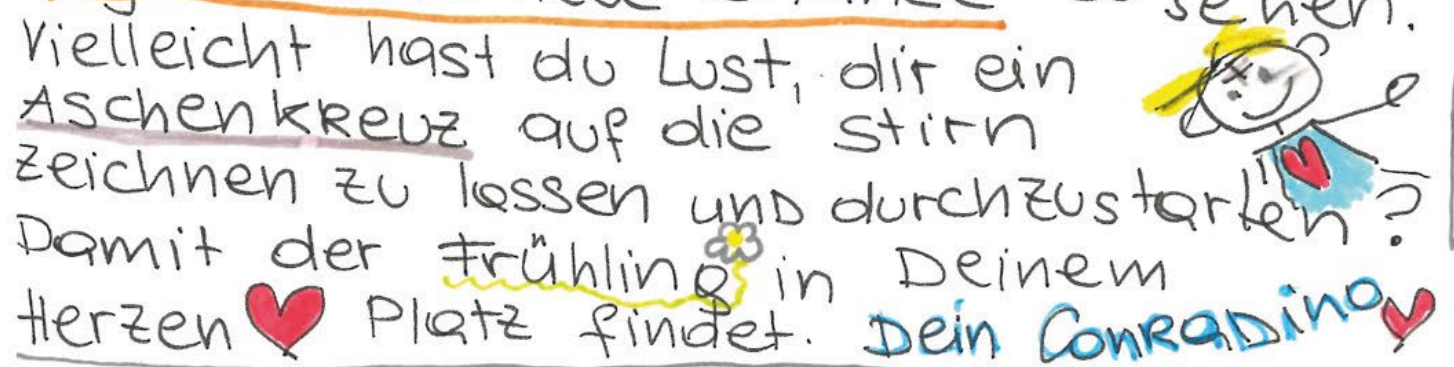 sehen.
Vielleicht hast du Lust, dir ein
Aschenkreuz auf die Stirn
zeichnen zu lassen und durchzustarten?
Damit der Frühling in Deinem
Herzen Platz findet. Dein Conradino